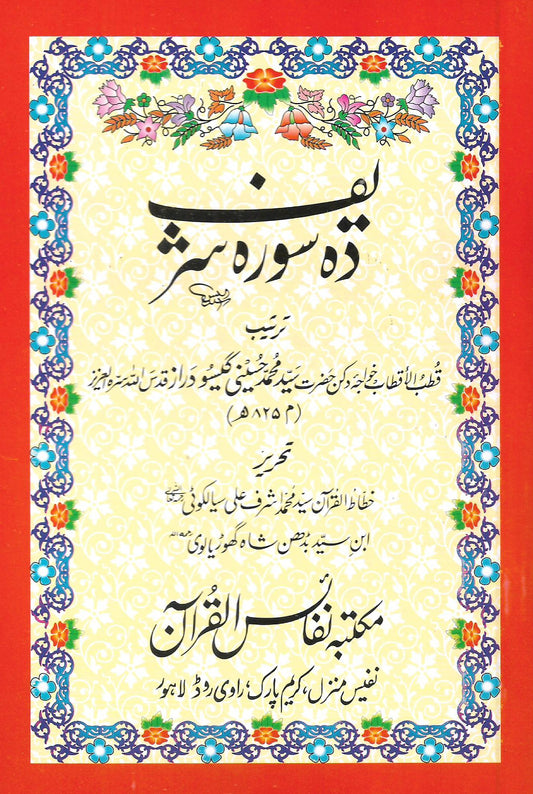 دہ سورہ شریف
ترتیب
قطب الأقطاب خواجہ دکن حضرت سید محمد حسینی گیسو دراز قدس اللہ سرہ العزیز
(م ۸۲۵ھ)
تحریر
خطاط القرآن سید محمد اشرف علی سیالکوٹی
ابنِ سیّد بڈھن شاہ گھوڑیالوی رحمہ اللہ
مکتبہ نفائس القرآن
نفیس منزل، کریم پارک، راوی روڈ لاہور